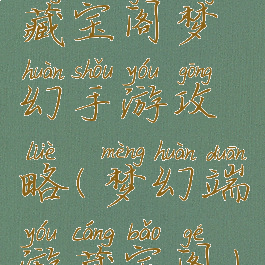 藏宝阁梦
huàn shǒu yóu gōng
幻手游攻
lüè mèng huàn duān
略(梦幻端
yóu cáng bǎo gé
游藏宝阁)